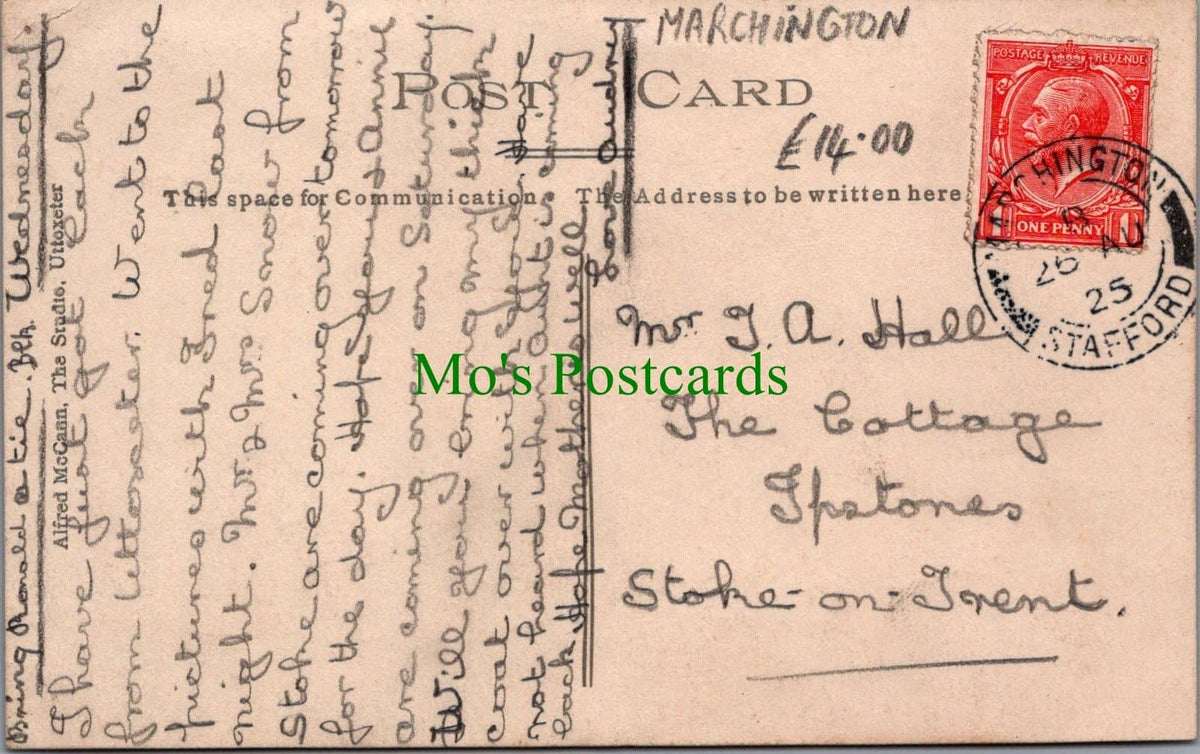 MARCHINGTON
POST CARD
£14.00
This space for Communication. The Address to be written here
POSTAGE REVENUE
ONE PENNY
MARCHINGTON
26 AU
25
STAFFORD
Bring Ronald a tie. Blk. Wednesday.
Alfred McCann, The Studio, Uttoxeter
I have just got back
from Uttoxeter. Went to the
pictures with Fred last
night. Mr & Mrs Snow from
Stoke are coming over tomorrow
for the day. Hope you & Annie
are coming over on Saturday
Will you bring my thick
coat over with you. Have
not heard when aunt is coming
back. Hope Mother is well
Love Audrey
Mr J. A. Hall
The Cottage
Ipstones
Stoke-on-Trent.
Mo's Postcards